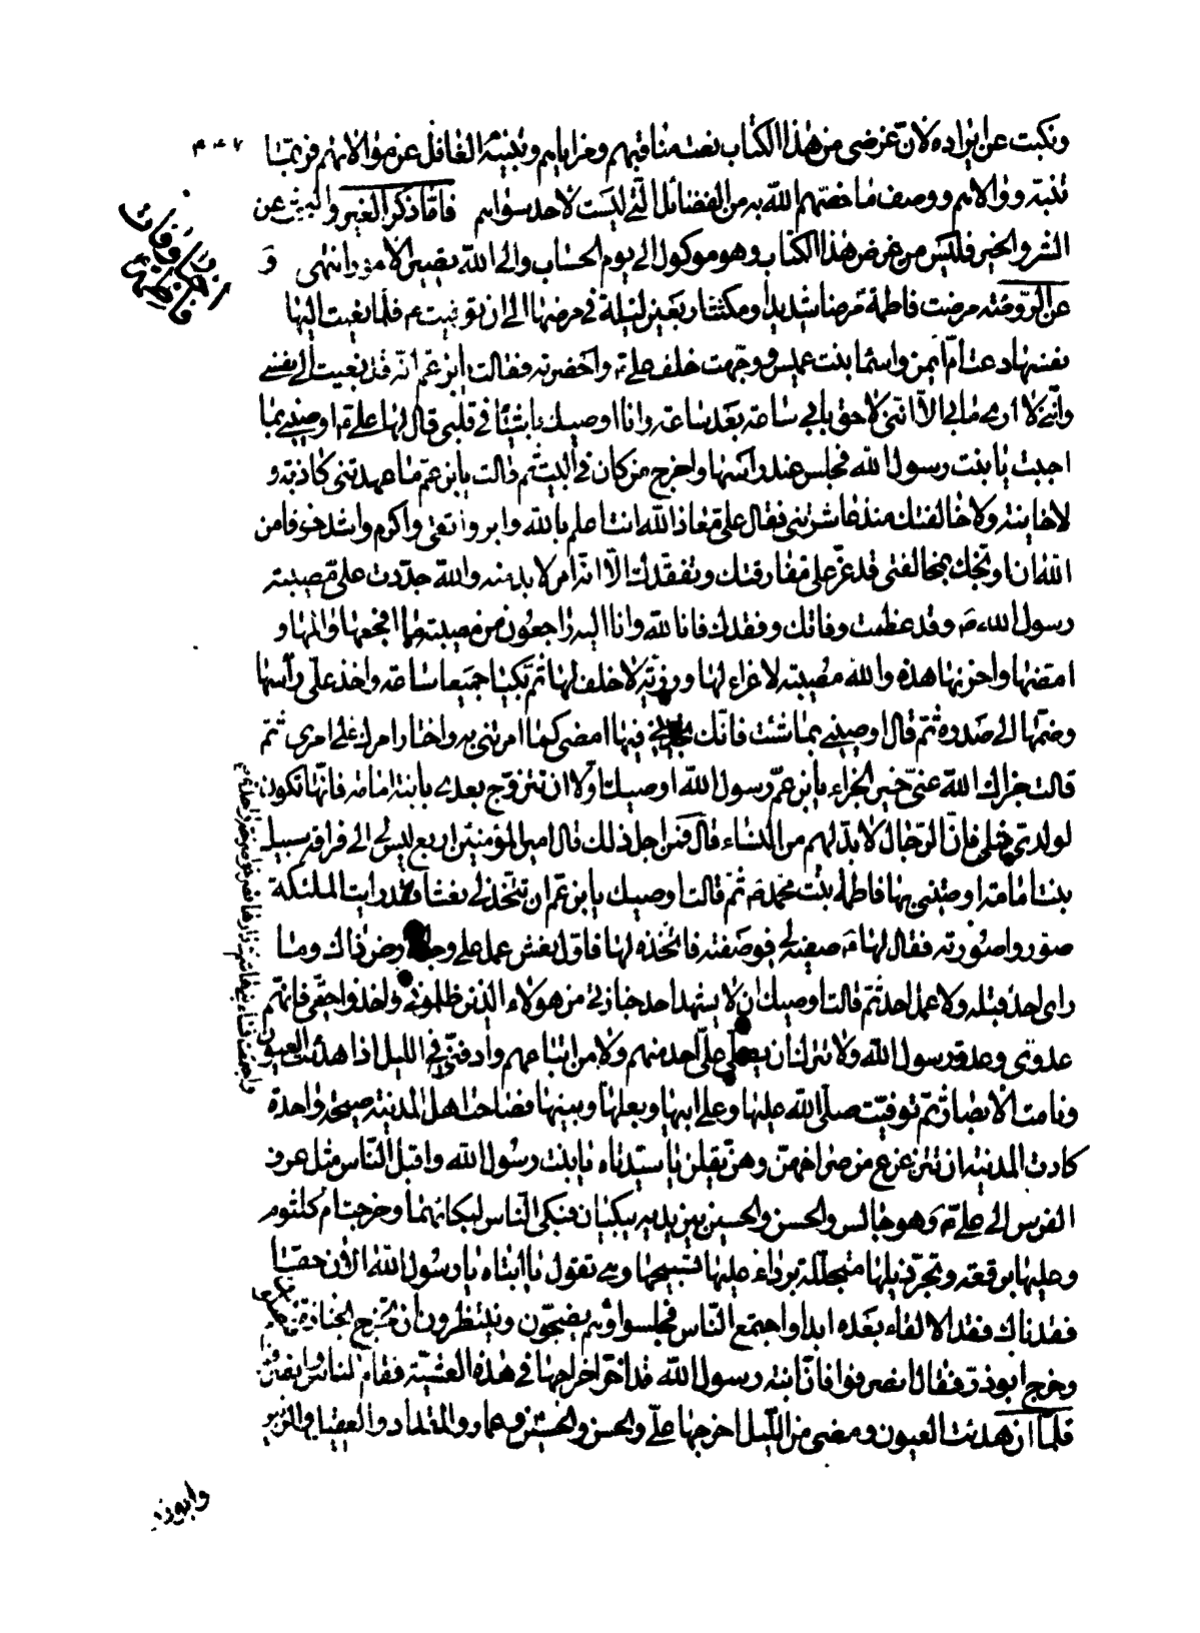 ونكبت عن ايراده لان غرضى من هذا الكتاب نعت مناقبهم ومزاياهم وتنبيه الغافل عن موالاتهم فربما
تنبه ووالاهم ووصف ما خصهم الله به من الفضائل التى ليست لاحد سواهم فاما ذكر الغير والبحث عن
الشر والخير فليس من غرض هذا الكتاب وهو موكول الى يوم الحساب والى الله يصير الامور انتهى و
عن الروضة مرضت فاطمة مرضا شديدا ومكثت اربعين ليلة فى مرضها الى ان توفيت ع فلما نعيت اليها
نفسها دعت ام ايمن واسما بنت عميس ووجهت خلف على ع واحضرته فقالت يابن عم انه قد نعيت الى نفسى
وانى لا ارى ما بى الا اننى لاحق بابى ساعة بعد ساعة وانا اوصيك باشيئا فى قلبى قال لها على ع اوصينى بما
احببت يا بنت رسول الله فجلس عند راسها واخرج من كان فى البيت ثم قالت يابن عم ما عهدتنى كاذبة و
لا خاينة ولا خالفتك منذ عاشرتنى فقال على ع معاذ الله انت اعلم بالله وابر واتقى واكرم واشد خوفا من
الله ان اوبخك بمخالفتى قد عز على مفارقتك وتفقدك الا انه امر لا بد منه والله جددت على مصيبة
رسول الله ص وقد عظمت وفاتك وفقدك فانا لله وانا اليه راجعون من مصيبة ما افجعها والمها و
امضها واحزنها هذه والله مصيبة لا عزاء لها ورزية لا خلف لها ثم بكيا جميعا ساعة واخذ على راسها
وضمها الى صدره ثم قال اوصينى بما شئت فانك تجدنى فيها امضى كما امرتنى به واختار امرك على امرى ثم
قالت جزاك الله عنى خير الجزاء يابن عم رسول الله اوصيك اولا ان تتزوج بعدى بابنة امامة فانها تكون
لولدى مثلى فان الرجال لا بد لهم من النساء قال فمن اجل ذلك قال امير المؤمنين اربع ليس لى الى فراقه سبيل
بنت امامة اوصتنى بها فاطمة بنت محمد ص ثم قالت اوصيك يابن عم ان تتخذ لى نعشا فقد رايت الملئكة
صوروا صورته فقال لها ع صفيه لى فوصفته فاتخذه لها فاول نعش عمل على وجه الارض ذاك وما
راى احد قبله ولا عمل احد ثم قالت اوصيك ان لا يشهد احد جنازتى من هولاء الذين ظلمونى واخذوا حقى فانهم
عدوى وعدو رسول الله ولا تترك ان يصلى على احد منهم ولا من اتباعهم وادفنى فى الليل اذا هدئت العيون
ونامت الابصار ثم توفيت صلى الله عليها وعلى ابيها وبعلها وبنيها فصاحت اهل المدينة صيحة واحدة
واجتمعت نساء بنى هاشم فى دارها فصرخوا صرخة واحدة
كادت المدينة ان تتزعزع من صراخهن وهن يقلن يا سيدتاه يا بنت رسول الله واقبل الناس مثل عرف
الفرس الى على ع وهو جالس والحسن والحسين بين يديه يبكيان فبكى الناس لبكائهما وخرجت ام كلثوم
وعليها برقعة وتجر ذيلها متجللة برداء عليها تسبيحها وهى تقول يا ابتاه يا رسول الله الان حقا
فقدناك فقدا لا لقاء بعده ابدا واجتمع الناس فجلسوا وهم يضجون وينتظرون ان تخرج الجنازة
وخرج ابو ذر فقال انصرفوا فان ابنة رسول الله قد اخر اخراجها فى هذه العشية فقام الناس وانصرفوا
فلما ان هدئت العيون ومضى من الليل اخرجها على والحسن والحسين وعمار والمقداد والعقيل والزبير
وابو ذر